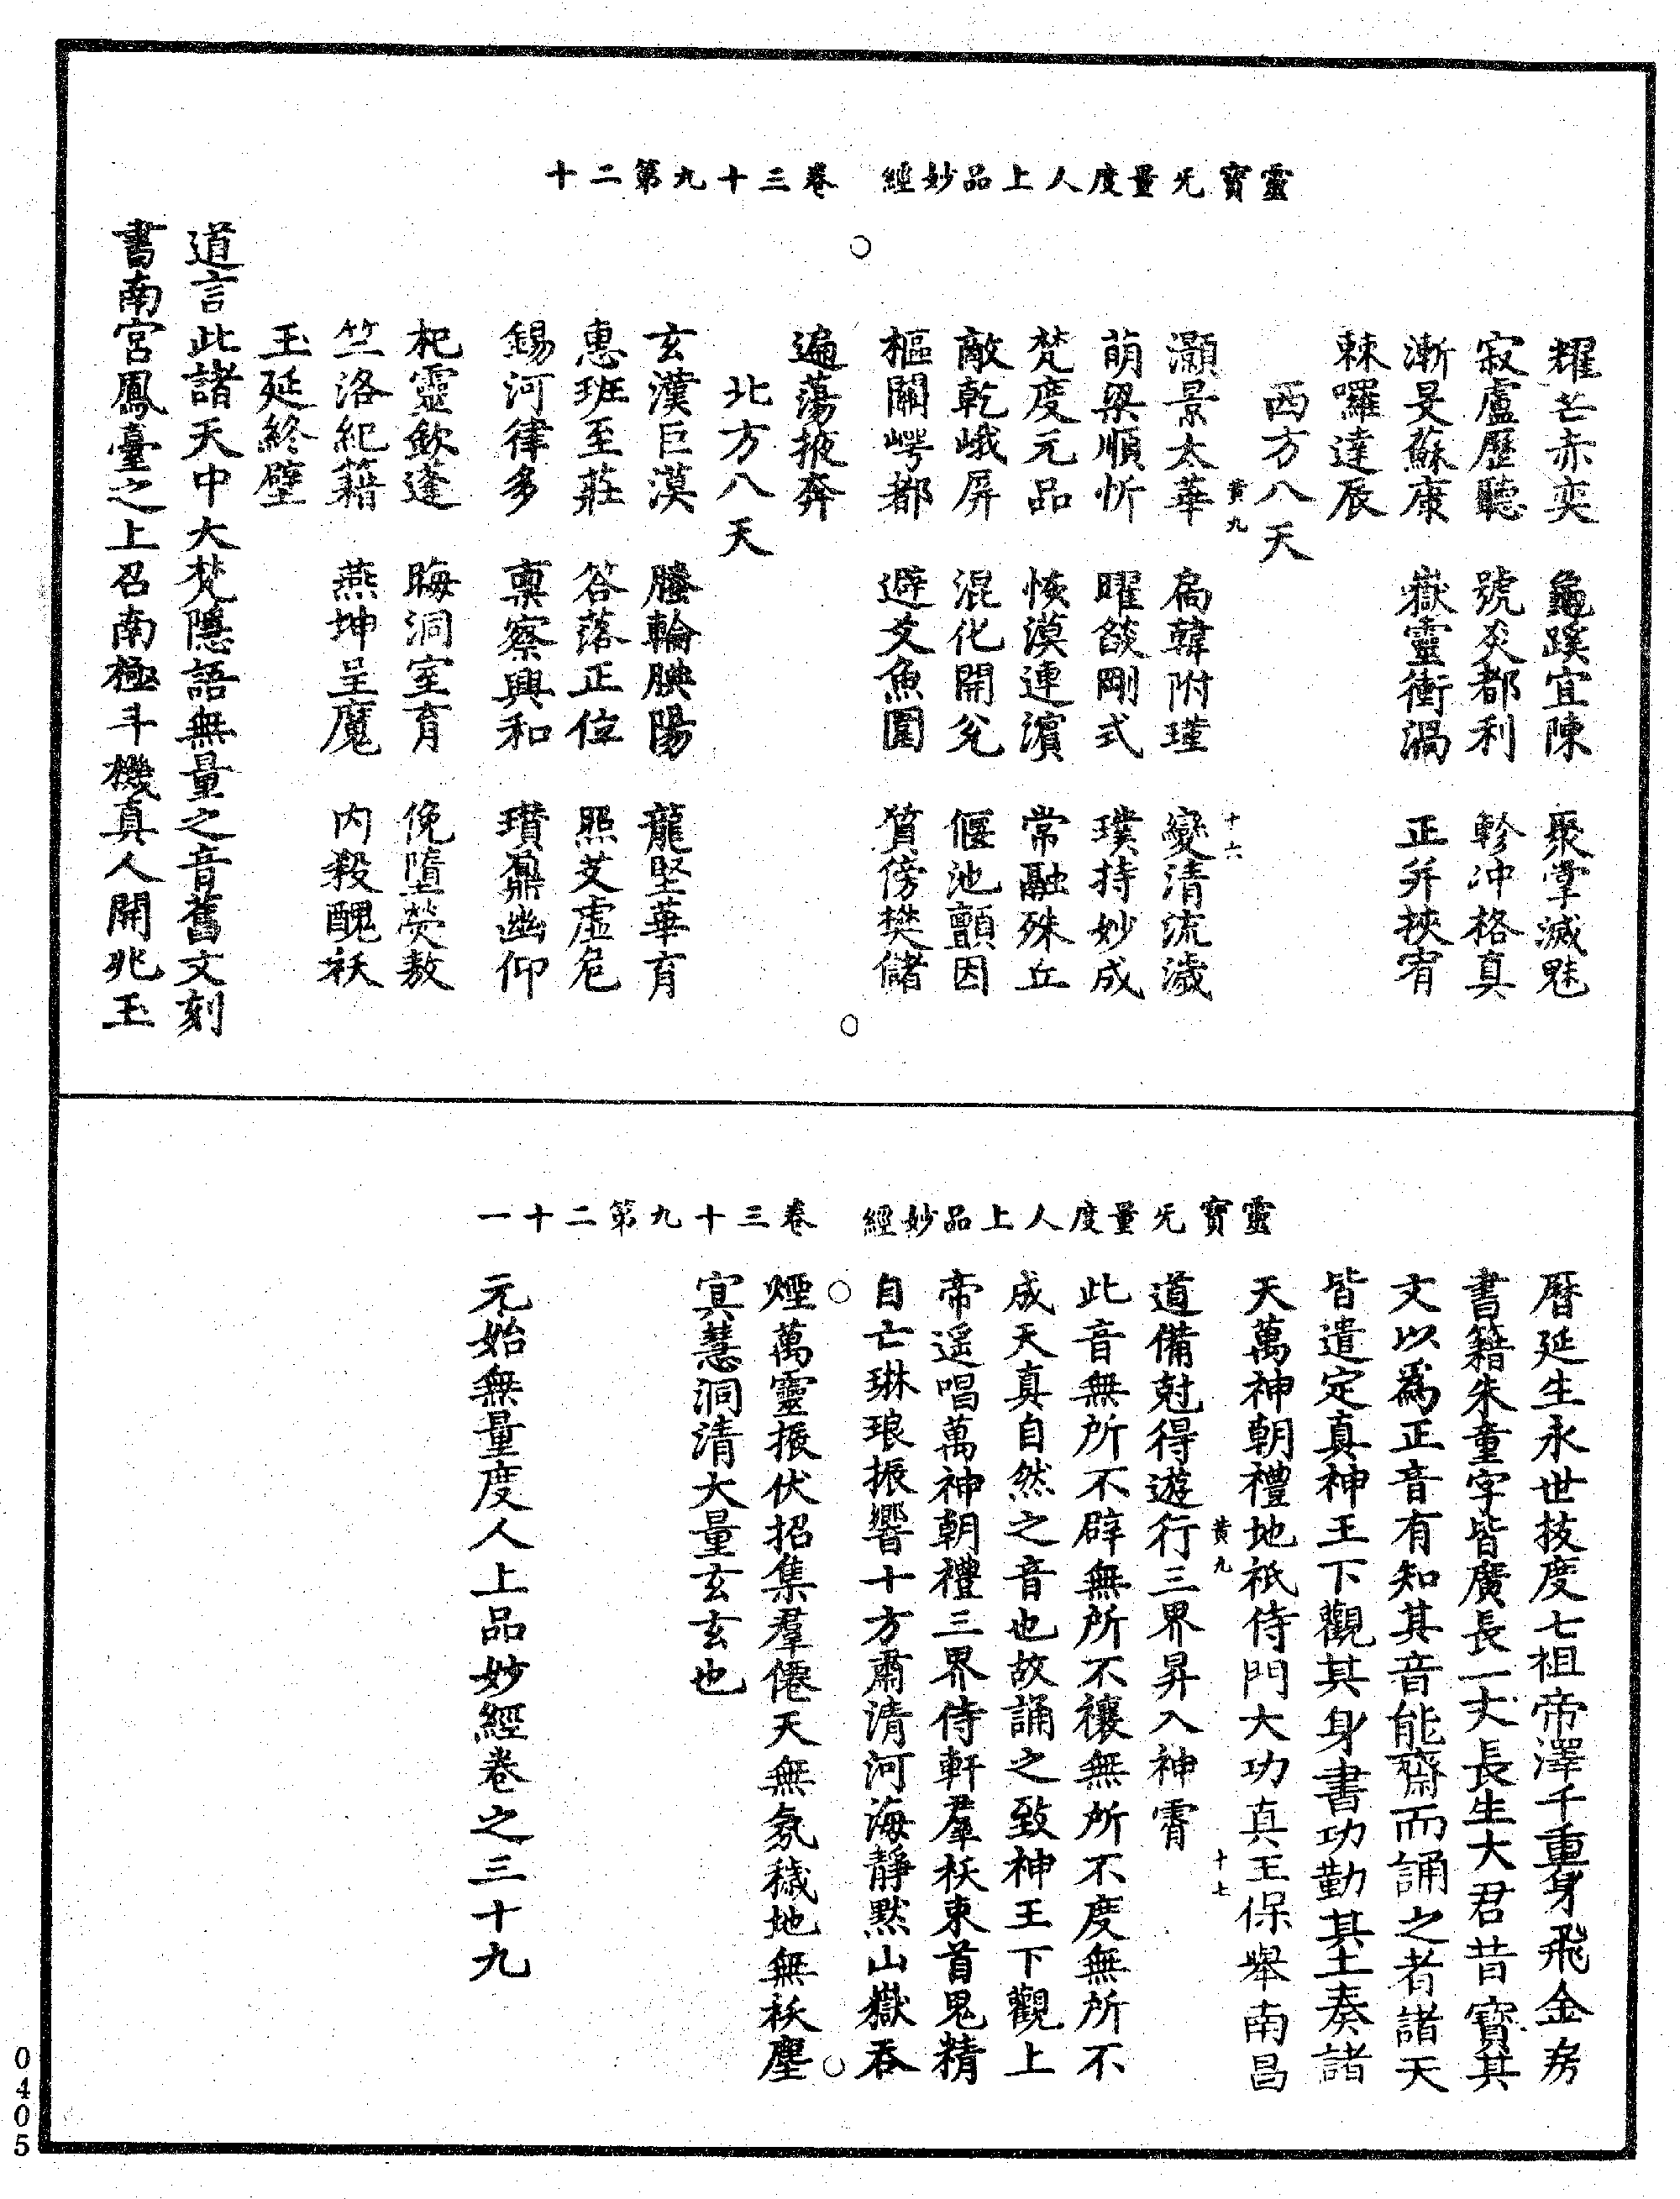 靈寶无量度人上品妙經　卷三十九第二十
耀芒赤奕　龜蹊宜陳　聚掌滅魅
寂盧歷聽　號炎都利　軫沖格真
漸旻蘇康　嶽靈衝渦　正并挾宥
棘囉達辰
西方八天
黃九　十六
灝景太華　扃韓附瑾　變清流濊
萌梁順忻　曜燄剛式　璞持妙成
梵度元品　恢漠連濱　常融殊丘
敵乾峨屏　混化開兌　偃池顫因
樞關崿都　避爻魚圍　質傍樊儲
遍蕩掖奔
北方八天
玄漢巨漠　騰輪腴陽　龍堅華育
惠班至莊　答落正位　照爻虛危
錫河律多　稟察興和　瓚鼐幽仰
杞靈欽蓬　晦洞室育　俛墮熒敖
竺洛紀籍　燕坤呈魔　內殺醜祅
玉延終壁
道言此諸天中大梵隱語無量之音舊文刻
書南宮鳳臺之上召南極斗機真人開兆玉
靈寶无量度人上品妙經　卷三十九第二十一
曆延生永世技度七祖帝澤千重身飛金房
書籍朱童字皆廣長一丈長生大君昔寶其
文以為正音有知其音能齋而誦之者諸天
皆遣定真神王下觀其身書功勤其上奏諸
天萬神朝禮地祇侍門大功真王保舉南昌
黃九　十七
道備尅得遊行三界昇入神霄
此音無所不辟無所不禳無所不度無所不
成天真自然之音也故誦之致神王下觀上
帝遥唱萬神朝禮三界侍軒羣祅束首鬼精
自亡琳琅振響十方肅清河海靜默山嶽吞
煙萬靈振伏招集羣僊天無氛穢地無祅塵
冥慧洞清大量玄玄也
元始無量度人上品妙經卷之三十九
0405